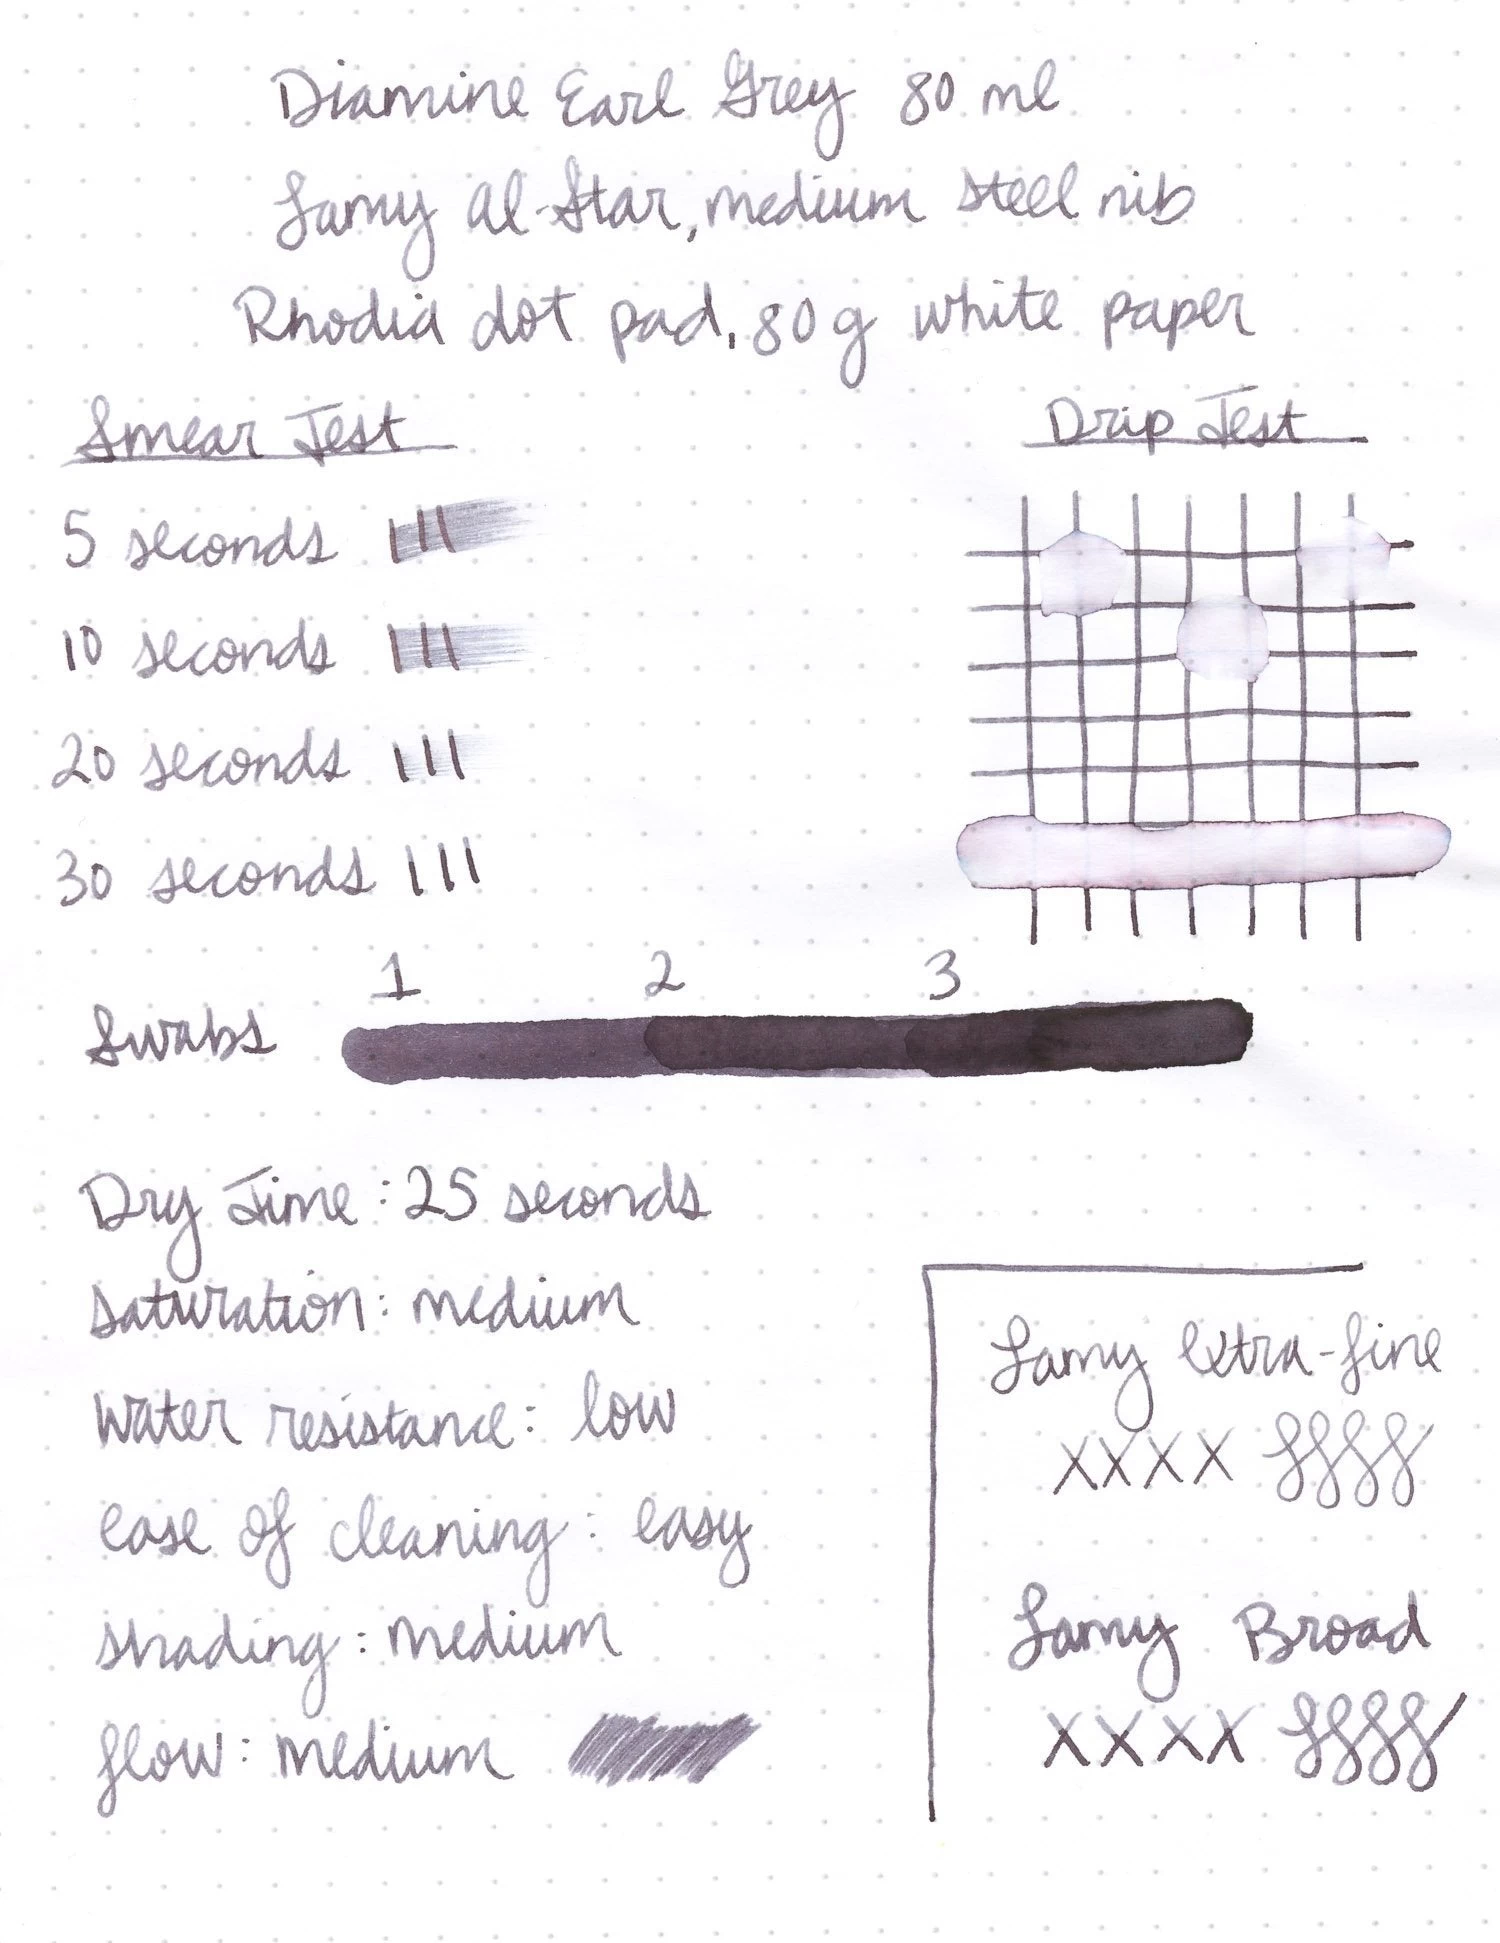 Diamine Earl Grey 80 ml
Lamy Al-Star, medium steel nib
Rhodia dot pad, 80 g white paper
Smear Test
5 seconds
10 seconds
20 seconds
30 seconds
Drip Test
1 2 3
Swabs
Dry Time: 25 seconds
saturation: medium
water resistance: low
ease of cleaning: easy
shading: medium
flow: medium
Lamy extra-fine
xxxx
Lamy Broad
xxxx